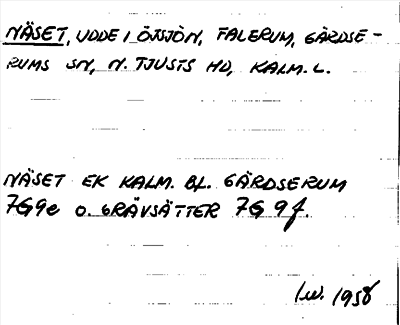 NÄSET, UDDE I ÖJSJÖN, FALERUM, GÄRDSE-
RUMS SN, N. TJUSTS HD, KALM. L.
NÄSET EK KALM. BL. GÄRDSERUM
7G9e O. GRÄVSÄTTER 7G 9f.
Iw. 1958